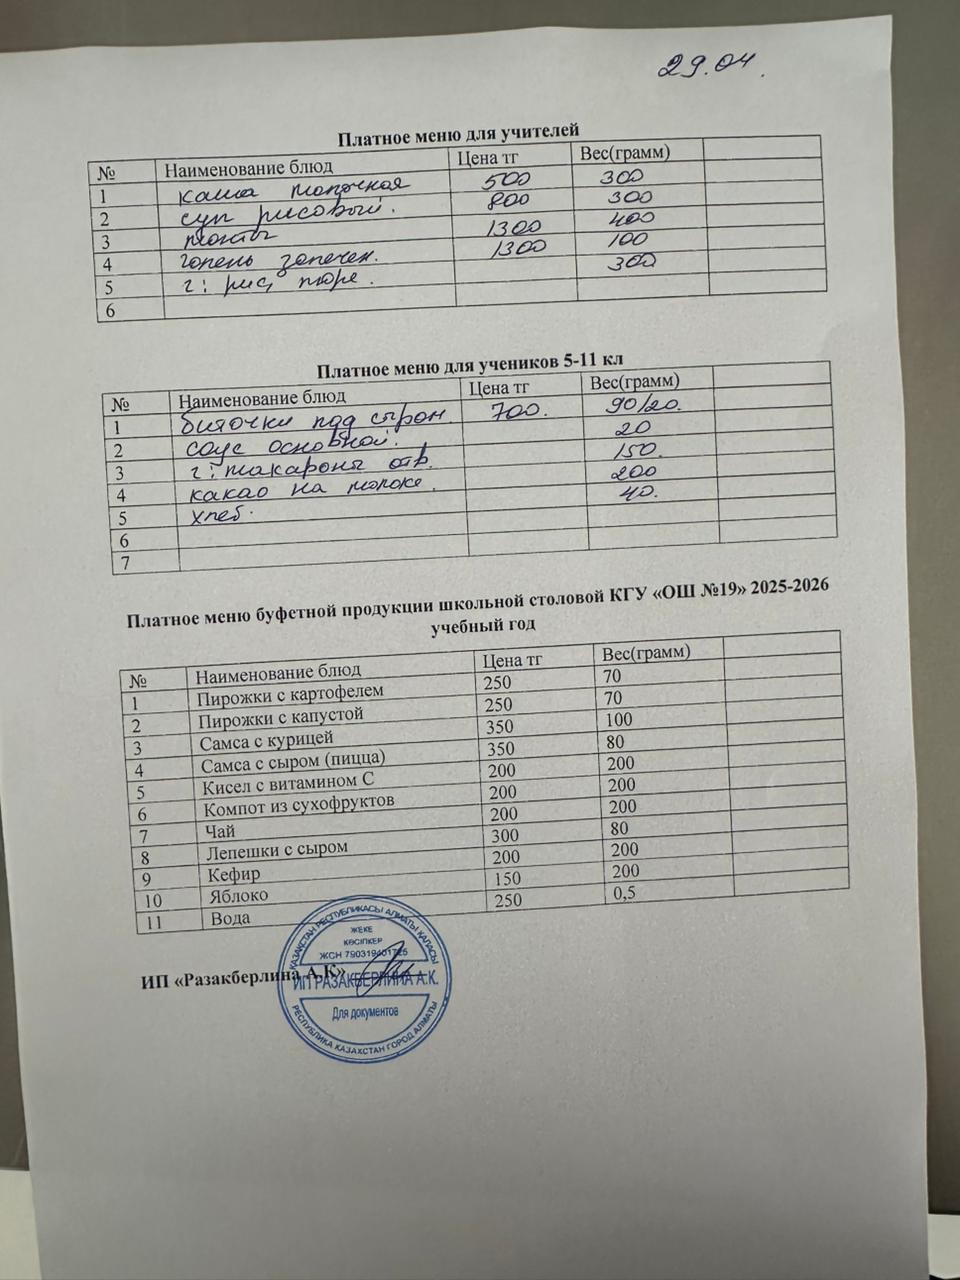 29.04.
Платное меню для учителей
№ Наименование блюд Цена тг Вес(грамм)
1 каша молочная 500 300
2 суп рисовый. 800 300
3 манты 1300 400
4 голень запечен. 1300 100
5 г: рис, пюре. 300
6
Платное меню для учеников 5-11 кл
№ Наименование блюд Цена тг Вес(грамм)
1 биточки под сыром. 700. 90/20.
2 соус основной. 20
3 г: макароны отв. 150.
4 какао на молоке. 200
5 хлеб. 40.
6
7
Платное меню буфетной продукции школьной столовой КГУ «ОШ №19» 2025-2026
учебный год
№ Наименование блюд Цена тг Вес(грамм)
1 Пирожки с картофелем 250 70
2 Пирожки с капустой 250 70
3 Самса с курицей 350 100
4 Самса с сыром (пицца) 350 80
5 Кисел с витамином С 200 200
6 Компот из сухофруктов 200 200
7 Чай 200 200
8 Лепешки с сыром 300 80
9 Кефир 200 200
10 Яблоко 150 200
11 Вода 250 0,5
ИП «Разакберлина А.К»
ҚАЗАҚСТАН РЕСПУБЛИКАСЫ АЛМАТЫ ҚАЛАСЫ
ЖЕКЕ
КӘСІПКЕР
ЖСН 790319401725
ИП РАЗАКБЕРЛИНА А.К.
Для документов
РЕСПУБЛИКА КАЗАХСТАН ГОРОД АЛМАТЫ